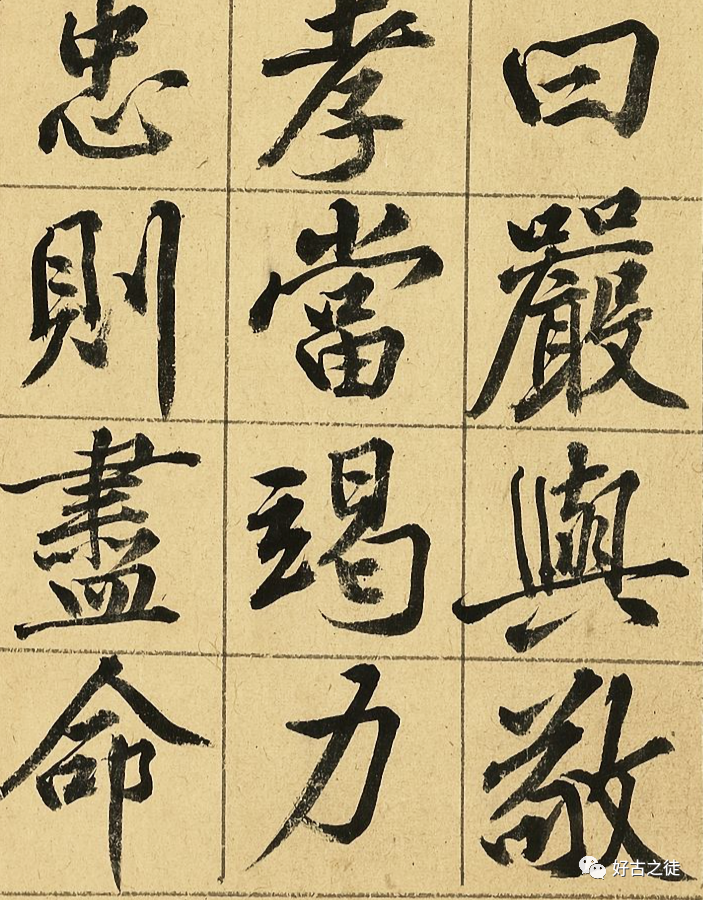 曰嚴與敬
孝當竭力
忠則盡命
好古之徒